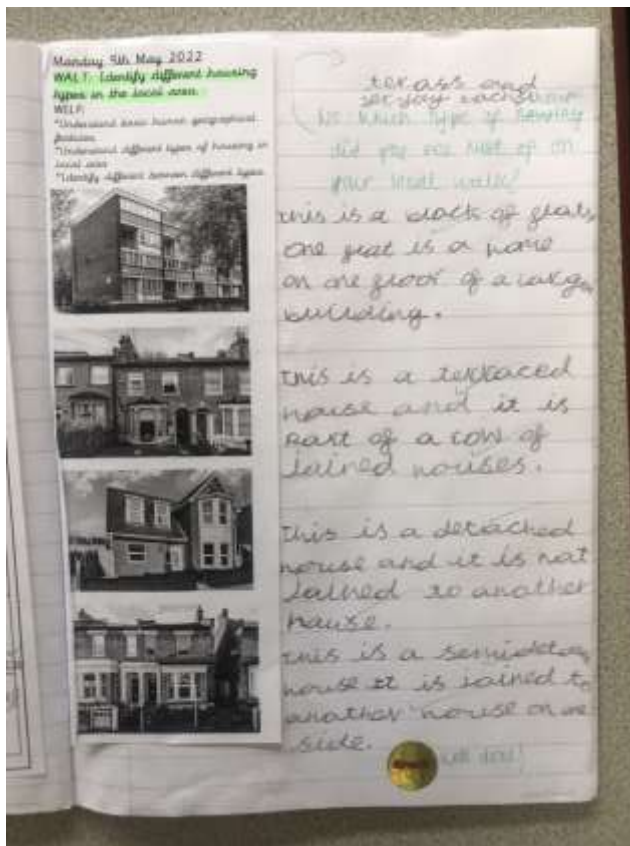 Monday 9th May 2022
WALT: Identify different housing
types in the local area.
WILF:
*Understand basic human geographical
features
*Understand different types of housing in
local area
*Identify different between different types
terass and
N: Which type of housing
did you see most of on
your local walk?
this is a block of flats,
one flat is a home
on one floor of a large
building.
this is a terraced
house and it is
part of a row of
Jained houses.
this is a detached
house and it is not
Jained to another
house.
this is a semidetach
house it is Jained to
another house on one
side.
well done!